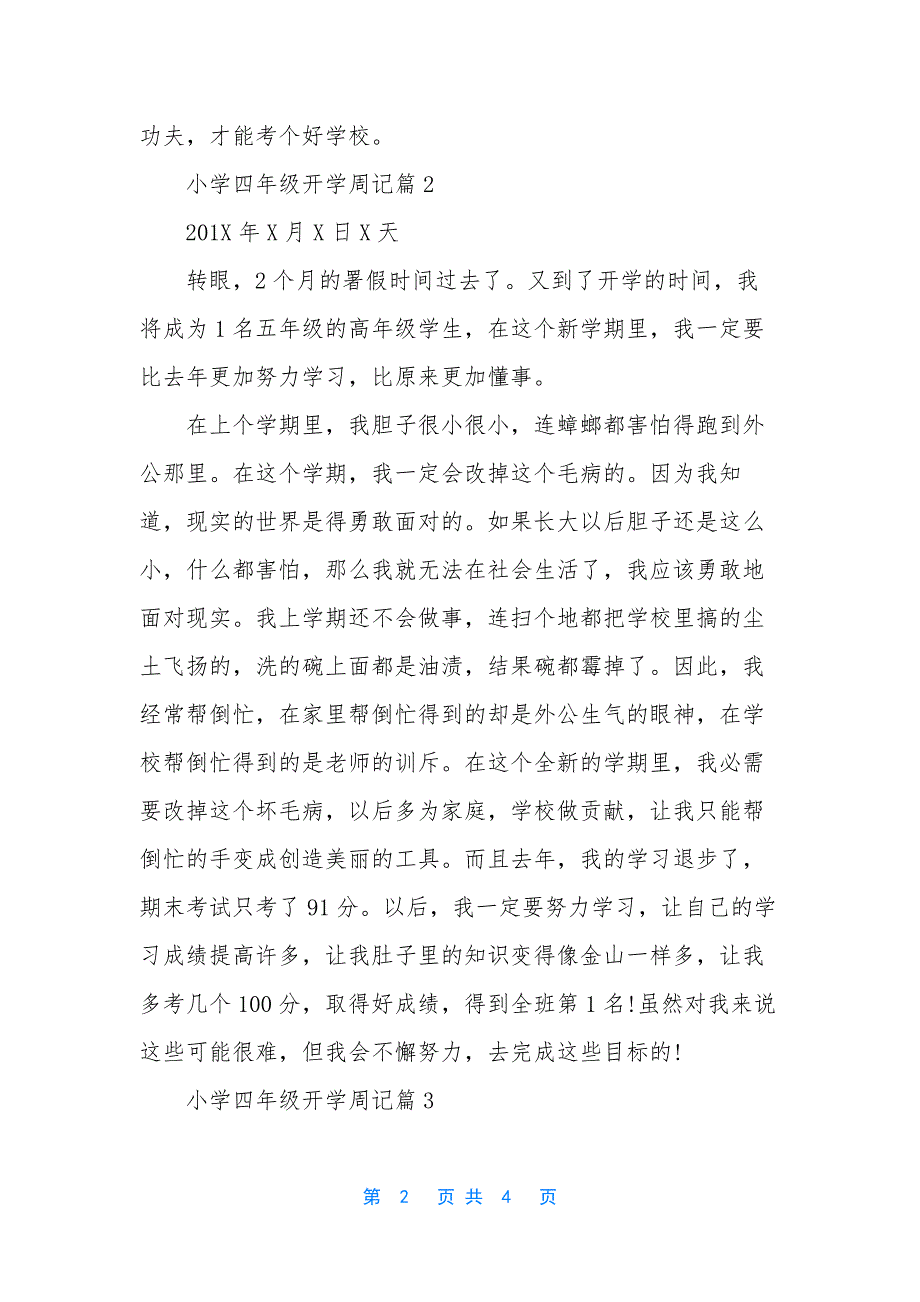 功夫，才能考个好学校。
小学四年级开学周记篇2
201X 年 X 月 X 日 X 天
转眼，2 个月的署假时间过去了。又到了开学的时间，我
将成为 1 名五年级的高年级学生，在这个新学期里，我一定要
比去年更加努力学习，比原来更加懂事。
在上个学期里，我胆子很小很小，连蟑螂都害怕得跑到外
公那里。在这个学期，我一定会改掉这个毛病的。因为我知
道，现实的世界是得勇敢面对的。如果长大以后胆子还是这么
小，什么都害怕，那么我就无法在社会生活了，我应该勇敢地
面对现实。我上学期还不会做事，连扫个地都把学校里搞的尘
土飞扬的，洗的碗上面都是油渍，结果碗都霉掉了。因此，我
经常帮倒忙，在家里帮倒忙得到的却是外公生气的眼神，在学
校帮倒忙得到的是老师的训斥。在这个全新的学期里，我必需
要改掉这个坏毛病，以后多为家庭，学校做贡献，让我只能帮
倒忙的手变成创造美丽的工具。而且去年，我的学习退步了，
期末考试只考了 91 分。以后，我一定要努力学习，让自己的学
习成绩提高许多，让我肚子里的知识变得像金山一样多，让我
多考几个 100 分，取得好成绩，得到全班第 1 名!虽然对我来说
这些可能很难，但我会不懈努力，去完成这些目标的!
小学四年级开学周记篇3
第 2 页 共 4 页